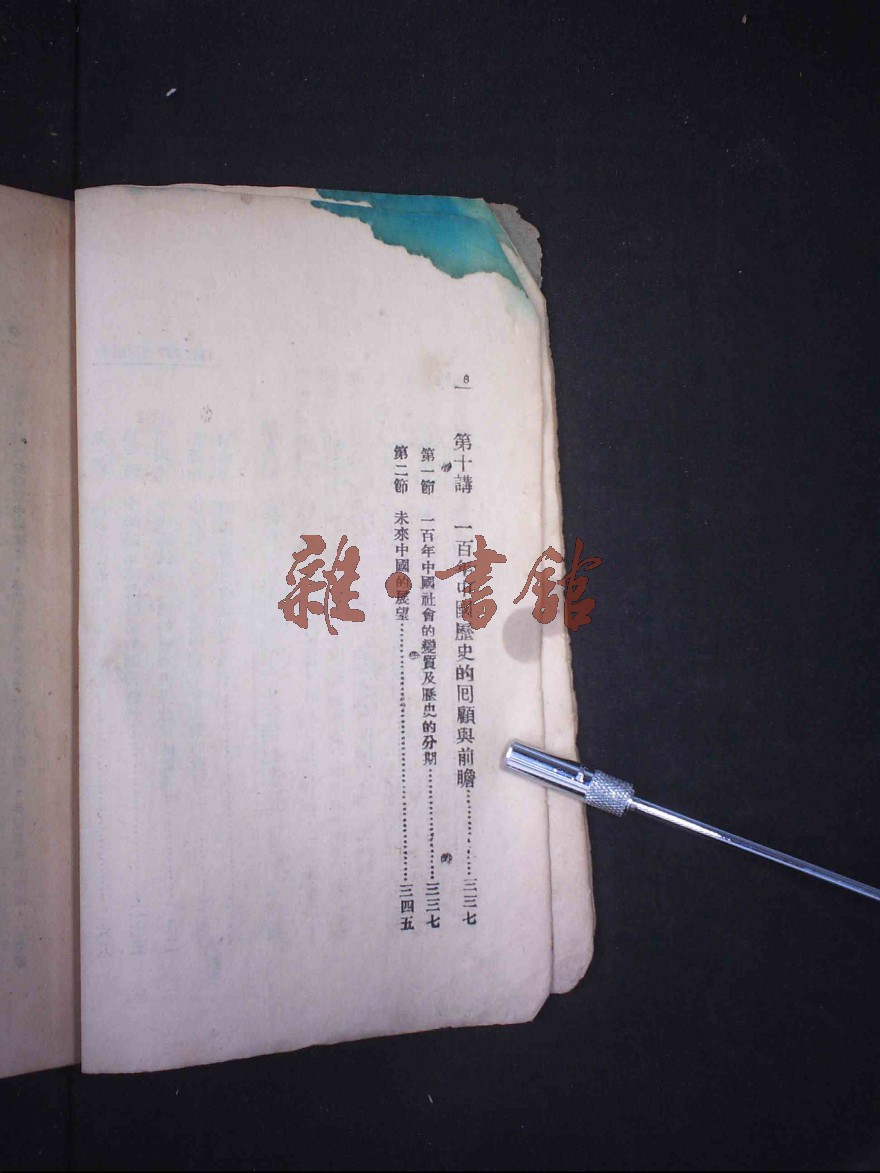 8
第十講 一百年中國歷史的回顧與前瞻……………三三七
第一節 一百年中國社會的變質及歷史的分期……………三三七
第二節 未來中國的展望……………三四五
雜·書館